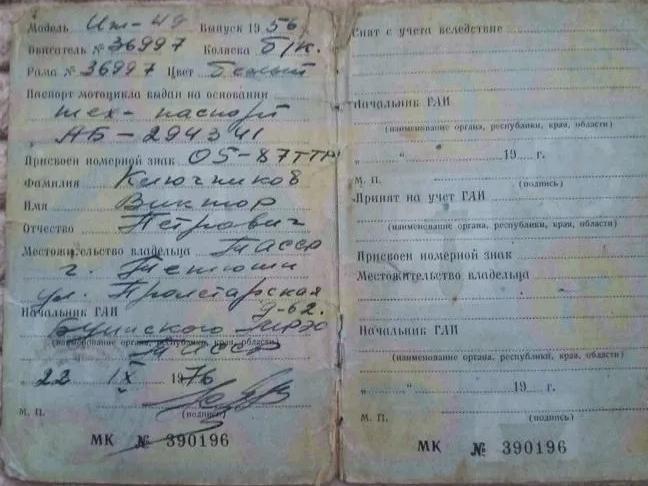 Модель Иж-49 Выпуск 1956
Двигатель № 36997 Коляска б/к.
Рама № 36997 Цвет
Паспорт мотоцикла выдан на основании
тех-паспорт
АБ-294341
Присвоен номерной знак 05-87ТТР
Фамилия Ключников
Имя Виктор
Отчество Петрович
Местожительство владельца ТАССР
г. Тетюши
ул. Пролетарская
Начальник ГАИ д-62.
Буинского МРЭО
(наименование органа, республики, края, области)
ТАССР
„ 22 IX 1976
(подпись)
М. П.
МК № 390196
Снят с учета вследствие
Начальник ГАИ
(наименование органа, республики, края, области)
„ “ 19 г.
М. П. (подпись)
Принят на учет ГАИ
(наименование органа, республики, края, области)
Присвоен номерной знак
Местожительство владельца
Начальник ГАИ
(наименование органа, республики, края, области)
„ “ 19 г.
М. П. (подпись)
МК № 390196